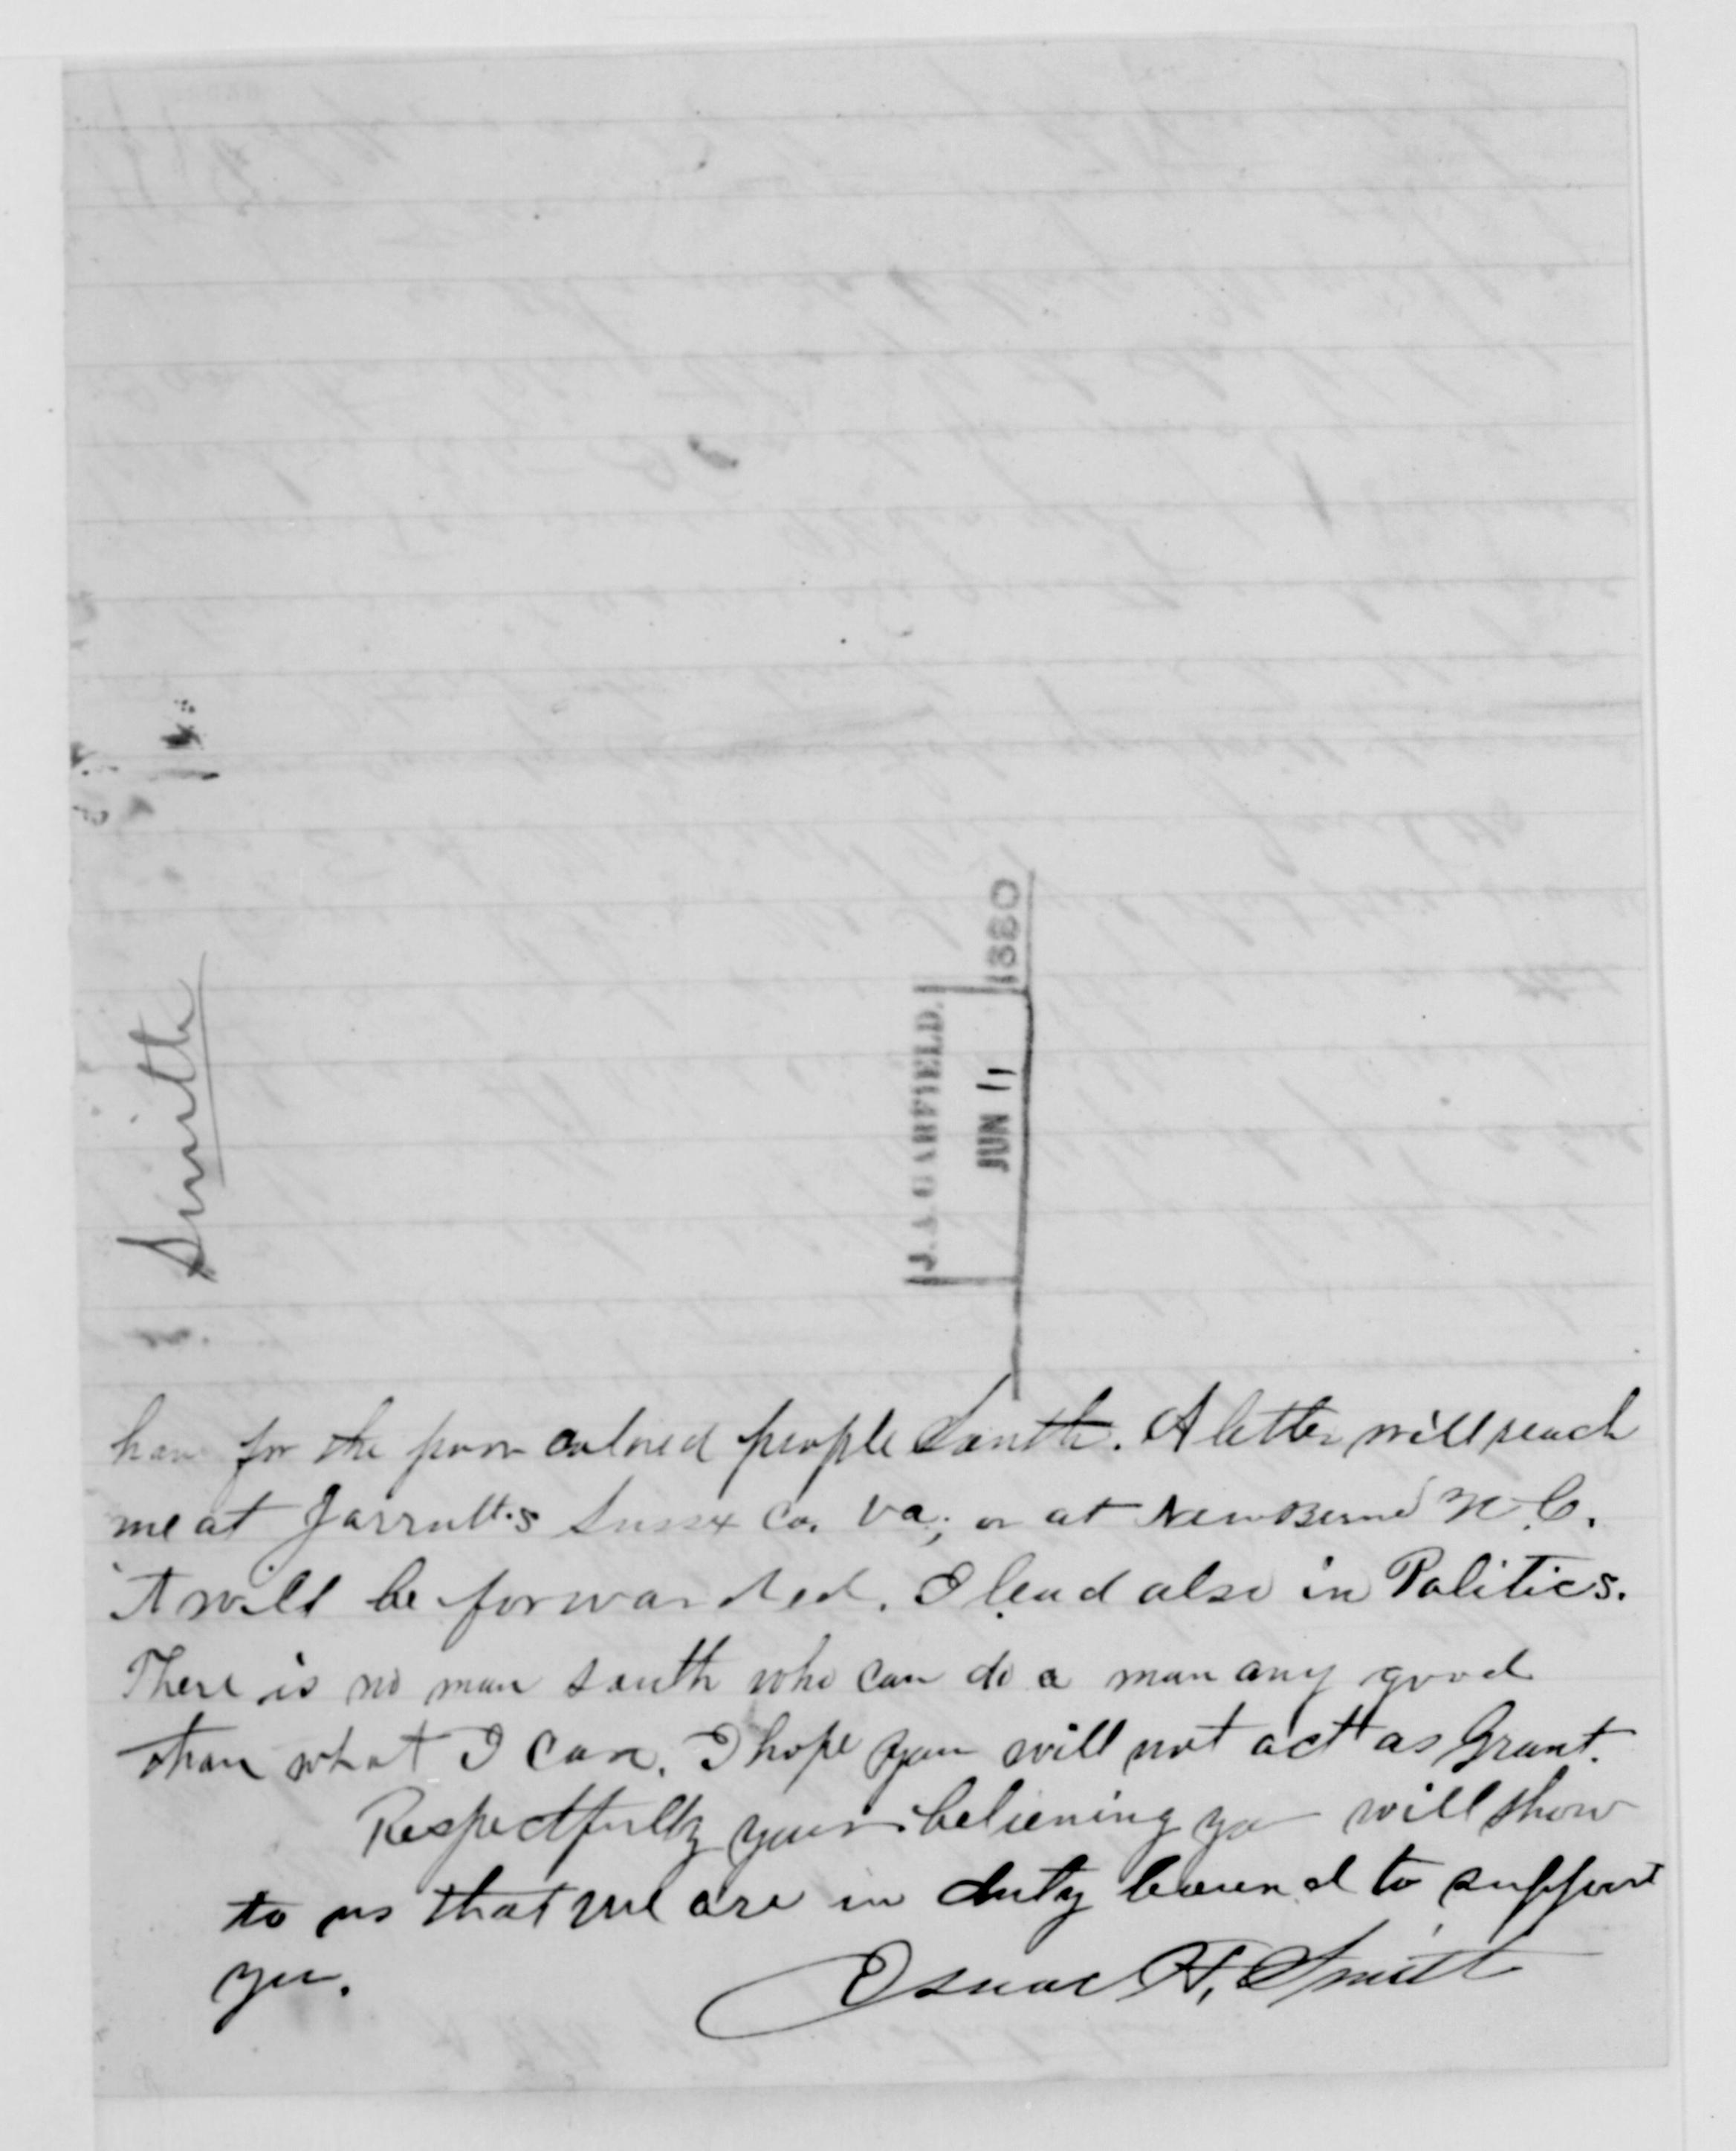 Smith
J. A. GARFIELD.
JUN 11 1880
have for the poor colored people South. A letter will reach
me at Jarratt's Sussex Co. Va; or at NewBerne N.C.
it will be forwarded. I lead also in Politics.
There is no man south who can do a man any good
than what I can. I hope you will not act as Grant.
Respectfully yours believing you will show
to us that we are in duty bound to support
you.
Isaac H. Smith